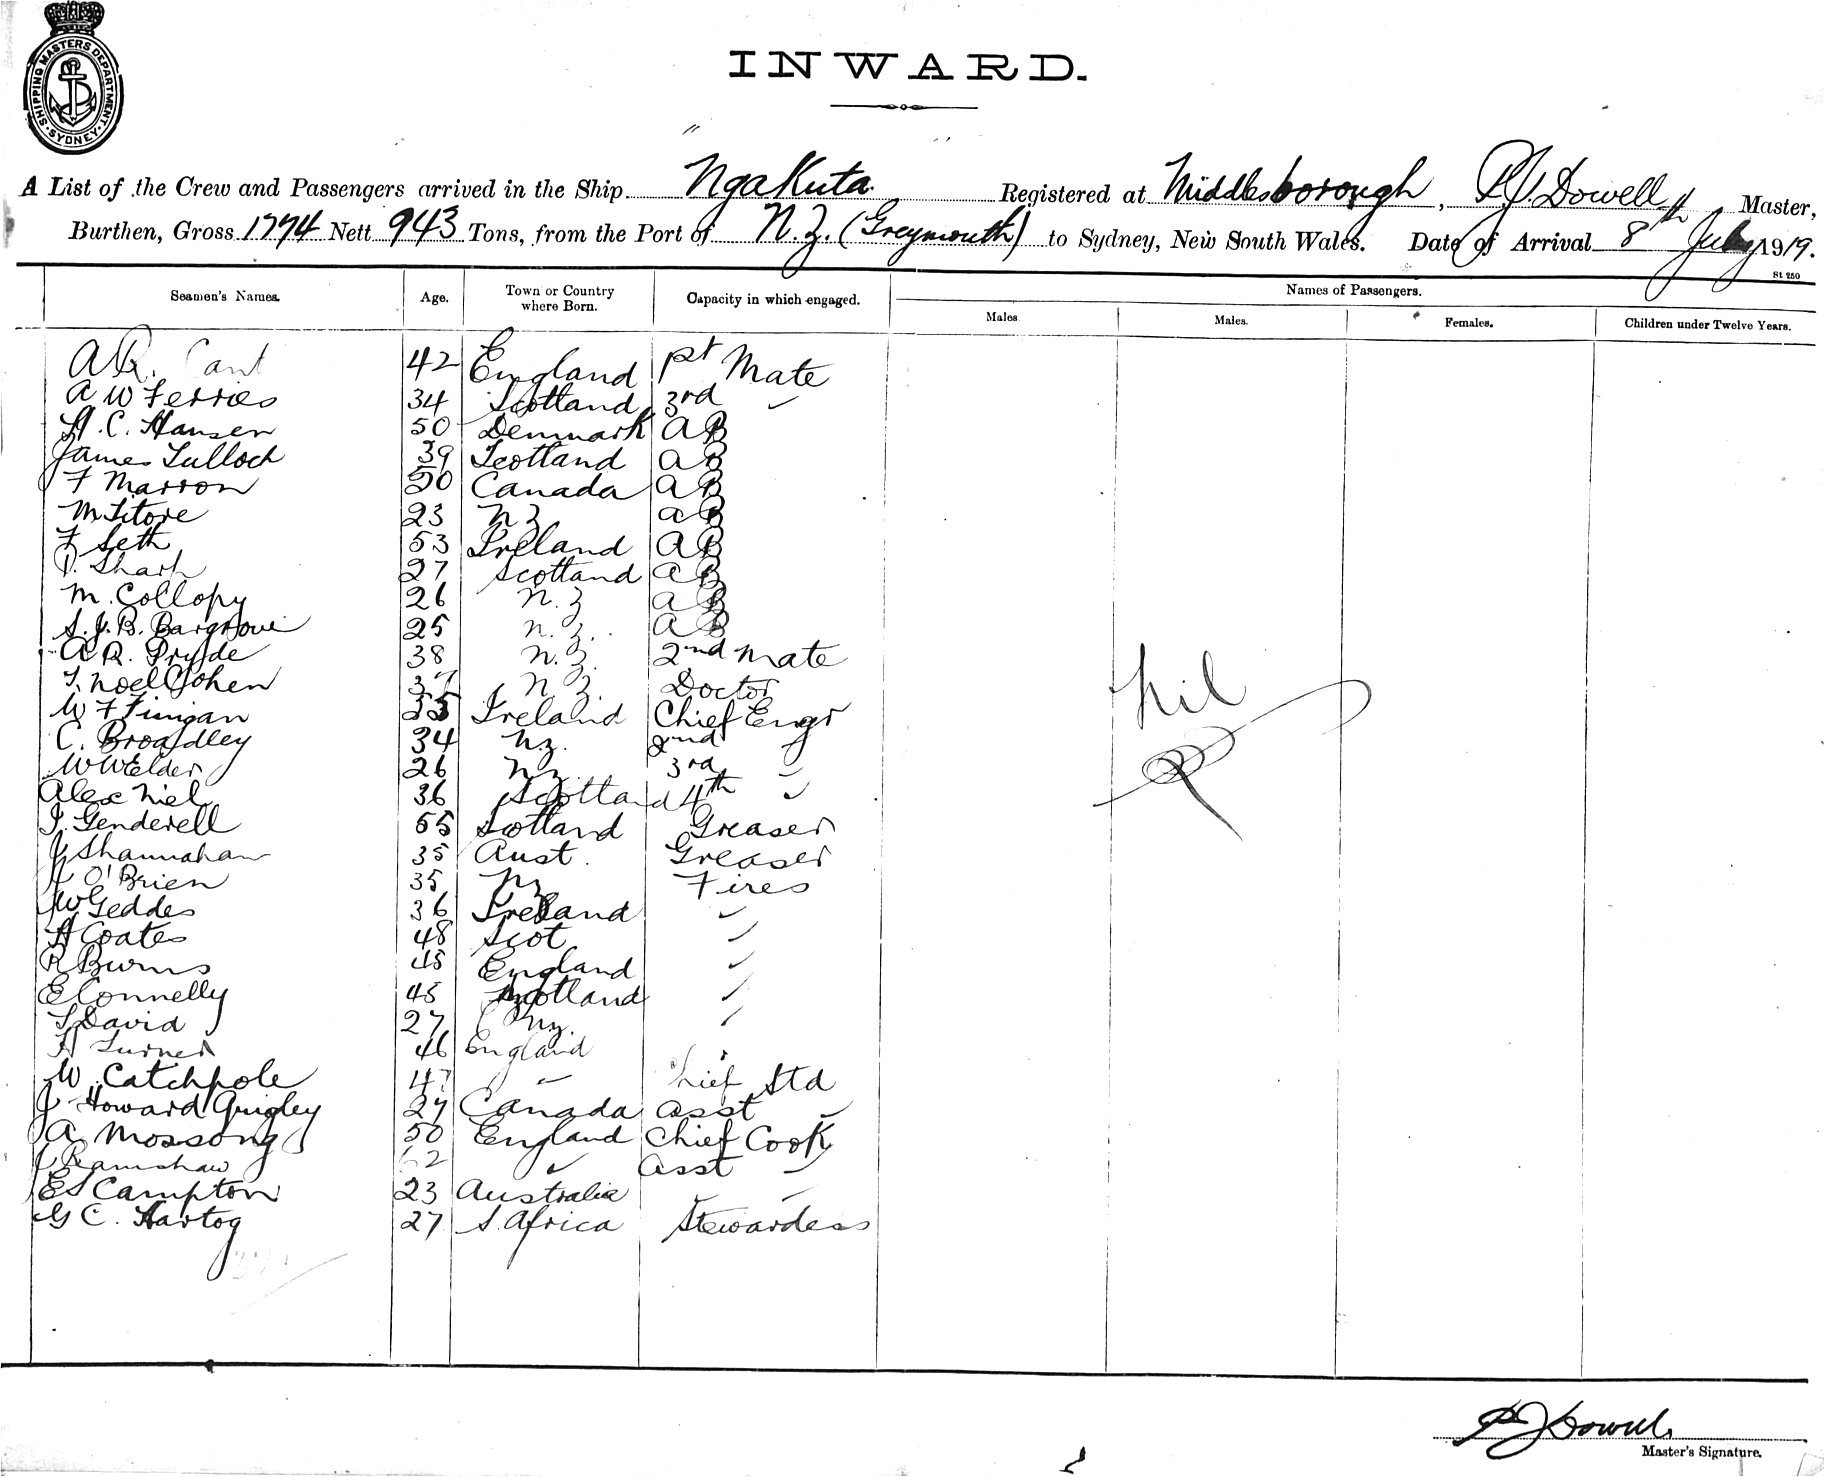 SHIPPING MASTERS DEPARTMENT · SYDNEY ·
INWARD.
A List of the Crew and Passengers arrived in the Ship "Ngakuta" Registered at Middlesborough, P J Dowell Master,
Burthen, Gross 1774 Nett 943 Tons, from the Port of N.Z. (Greymouth) to Sydney, New South Wales. Date of Arrival 8th July 1919.
St 250
Seamen's Names. Age. Town or Country where Born. Capacity in which engaged. Names of Passengers.
Males. Males. Females. Children under Twelve Years.
A R. Cant 42 England 1st Mate
A W Ferries 34 Scotland 3rd "
H. C. Hansen 50 Denmark AB
James Tulloch 39 Scotland AB
F Marron 50 Canada AB
M Titore 23 NZ AB
F Seth 53 Ireland AB
Sharp 27 Scotland AB
M. Collopy 26 N.Z AB
S. J. B. Bargrove 25 N.Z. AB
A R. Pryde 38 N.Z. 2nd Mate
T. Noel Cohen N Z. Doctor
W F Finigan Ireland Chief Engr
C. Broadley 34 NZ. 2nd
W W Elder 26 NZ. 3rd "
Alex Niel 36 Scotland 4th "
Genderell 55 Scotland Greaser
J Shannahan 35 Aust. Greaser
J O'Brien 35 NZ Fires
J W Geddes 36 Ireland "
H Coates 48 Scot "
R Burns 48 England "
E Connelly 45 Scotland "
T David 27 NZ. "
H Turner 46 England
W Catchpole " Chief Std
J Howard Quigley 27 Canada Asst "
A Mossong 50 England Chief Cook
Ramshaw " Asst "
E S Campton 23 Australia "
G C. Hartog 27 S. Africa Stewardess
Nil
P J Dowell.
Master's Signature.